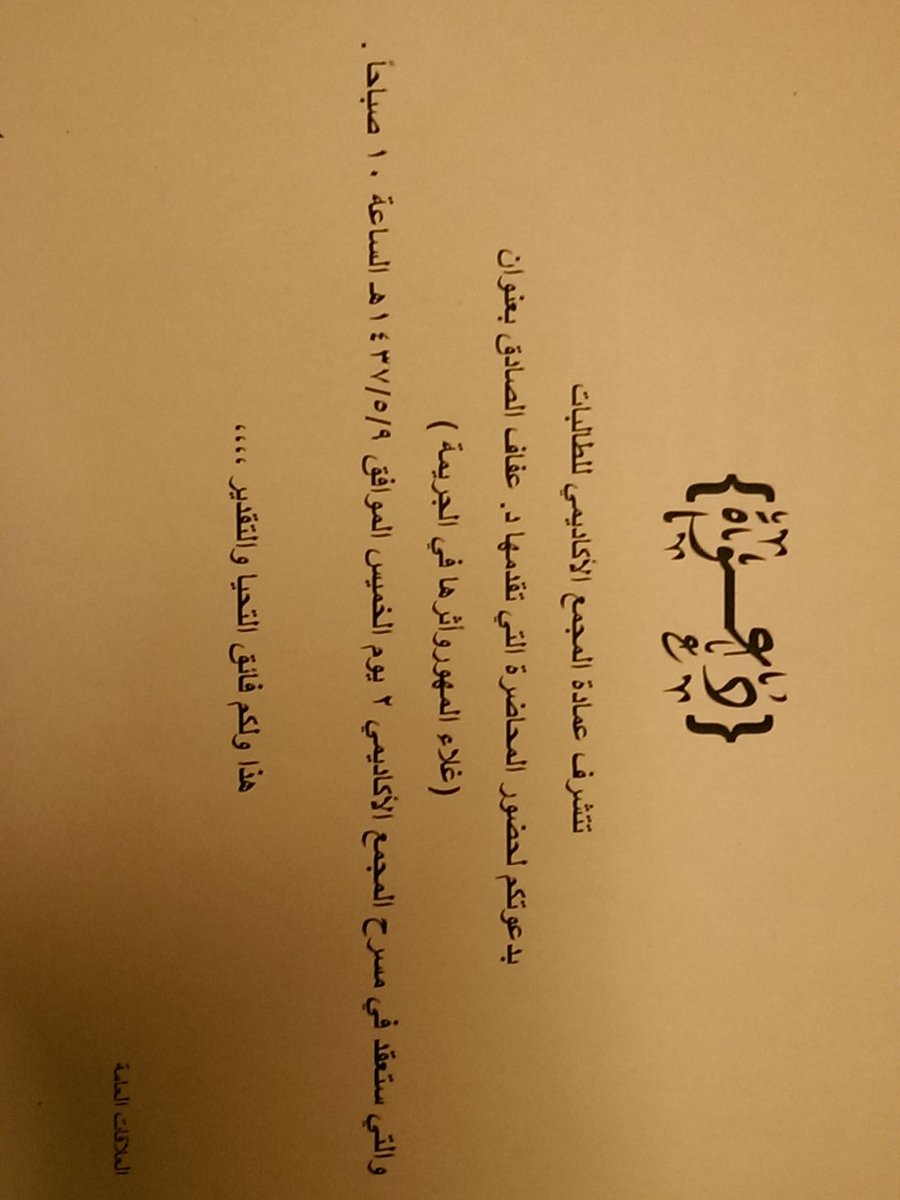 {دعوة}
تتشرف عمادة المجمع الأكاديمي للطالبات
بدعوتكم لحضور المحاضرة التي تقدمها د. عفاف الصادق بعنوان
(غلاء المهور وأثرها في الجريمة )
والتي ستعقد في مسرح المجمع الأكاديمي ٢ يوم الخميس الموافق ١٤٣٧/٥/٩هـ الساعة ١٠ صباحاً .
هذا ولكم فائق التحيا والتقدير ،،،،
العلاقات العامة